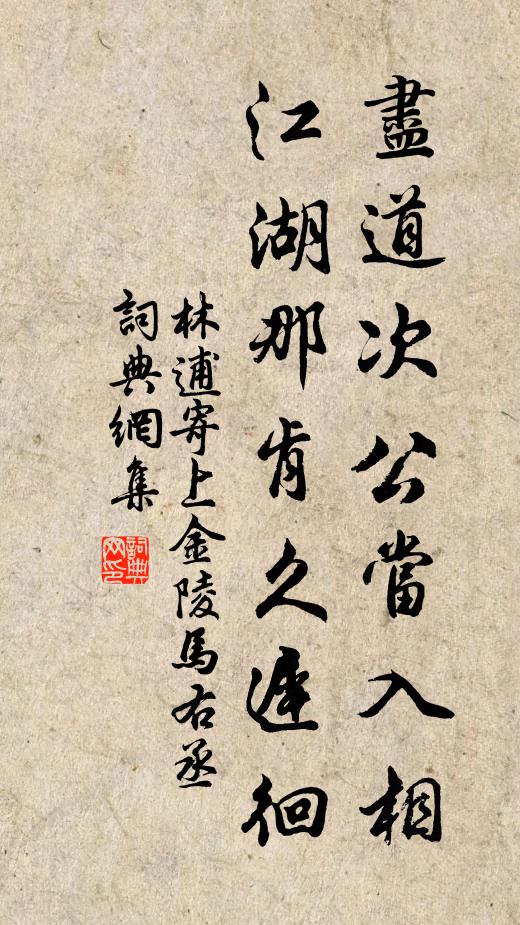 盡道次公當入相
江湖那肯久遲徊
林逋寄上金陵馬右丞
詞典網集
詞典
网印